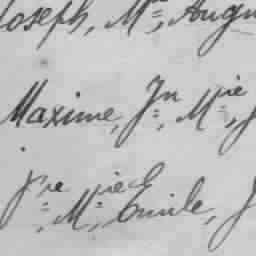 Joseph, Mie, Augu
Maxime, Jn, Mie, J
Jre, Mie Emile, J